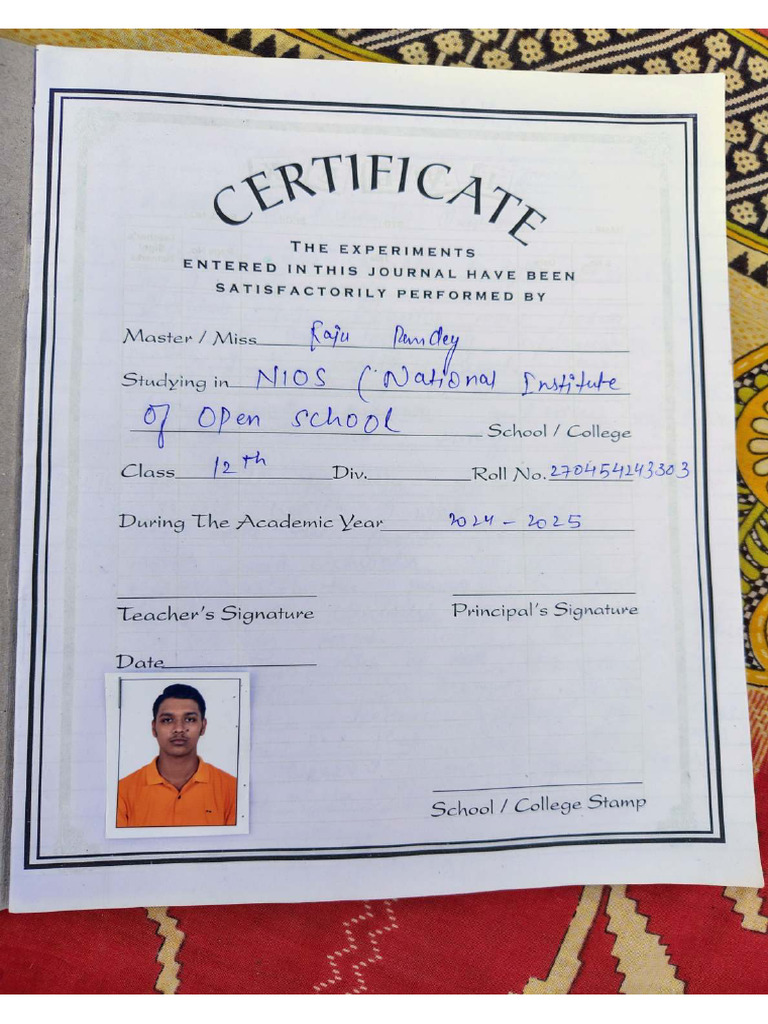 CERTIFICATE
THE EXPERIMENTS
ENTERED IN THIS JOURNAL HAVE BEEN
SATISFACTORILY PERFORMED BY
Master / Miss Raju Pandey
Studying in NIOS (National Institute
of Open School School / College
Class 12th Div. Roll No. 270454243303
During The Academic Year 2024 - 2025
Teacher's Signature Principal's Signature
Date
School / College Stamp